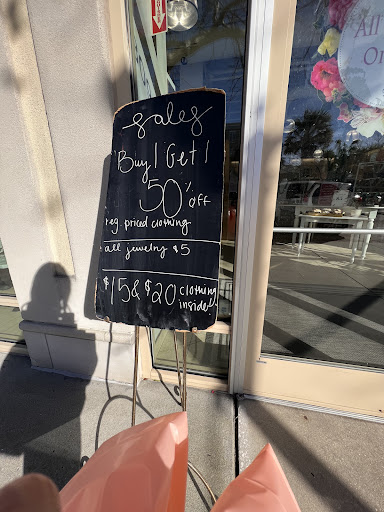 sales
Buy 1 Get 1
50% off
reg priced clothing
all jewelry $5
$15 & $20 clothing
inside!
All
On